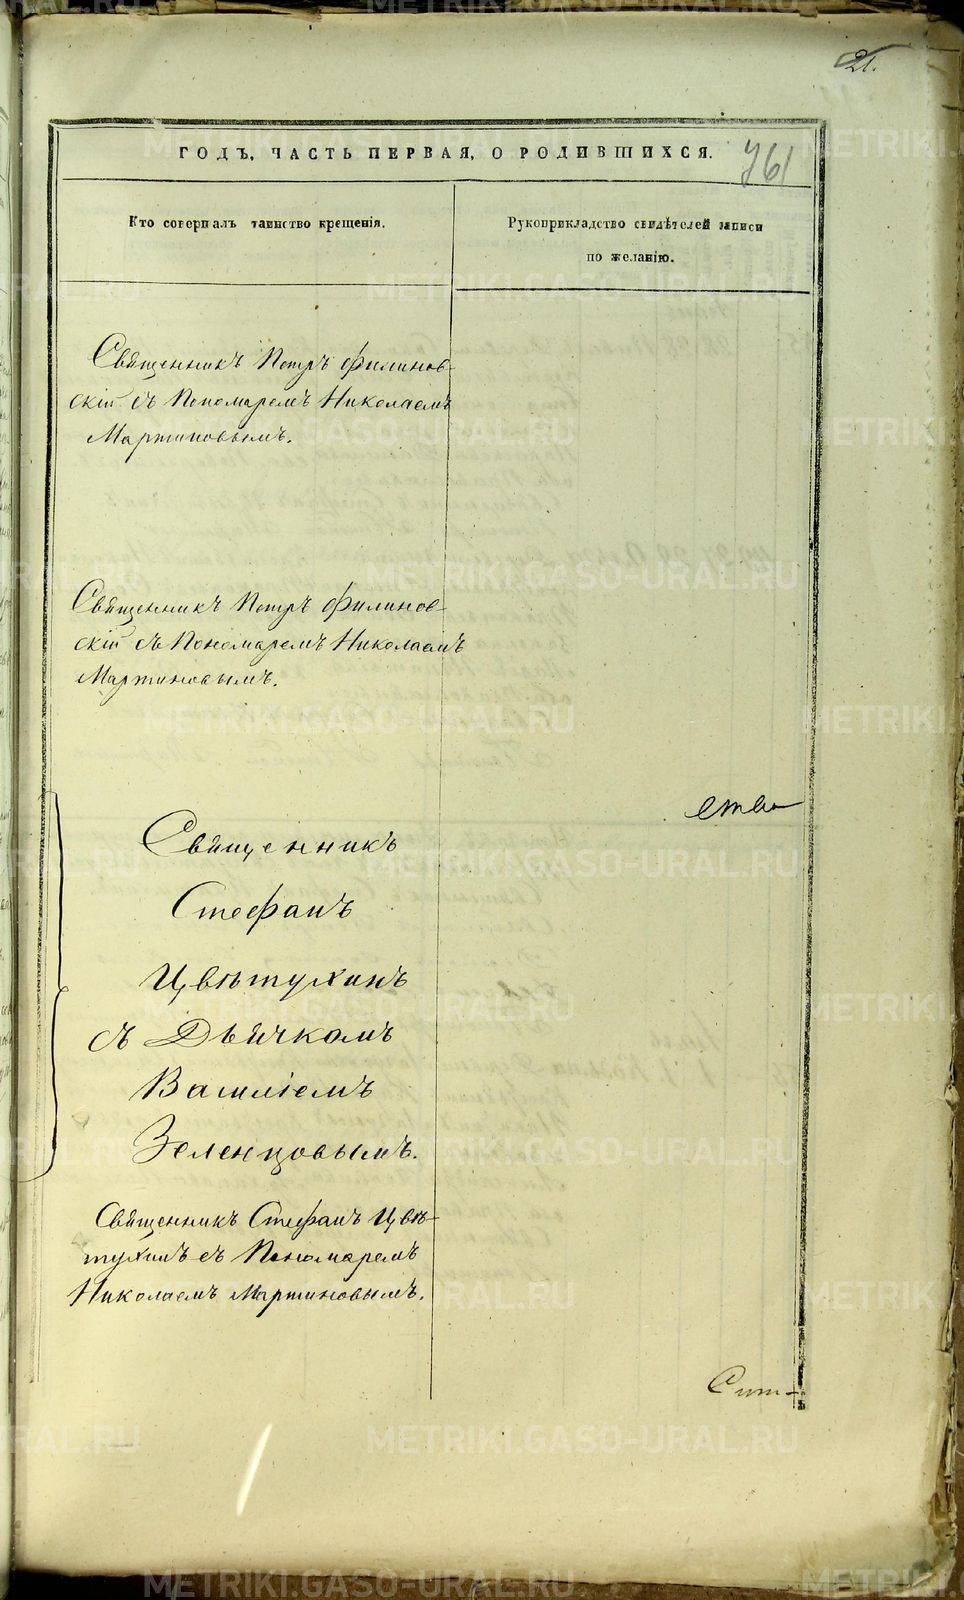 21.
ГОДЪ, ЧАСТЬ ПЕРВАЯ, О РОДИВШИХСЯ.
761
Кто совершалъ таинство крещенія.
Рукоприкладство свидѣтелей записи
по желанію.
Священникъ Петръ Филинов-
скій съ Пономаремъ Николаемъ
Мартиновымъ.
Священникъ Петръ Филинов-
скій съ Пономаремъ Николаемъ
Мартиновымъ.
Священникъ
Стефанъ
Цвѣтухинъ
съ Дьячкомъ
Василіемъ
Зеленцовымъ.
Священникъ Стефанъ Цвѣ-
тухинъ съ Пономаремъ
Николаемъ Мартиновымъ.
METRIKI.GASO-URAL.RU